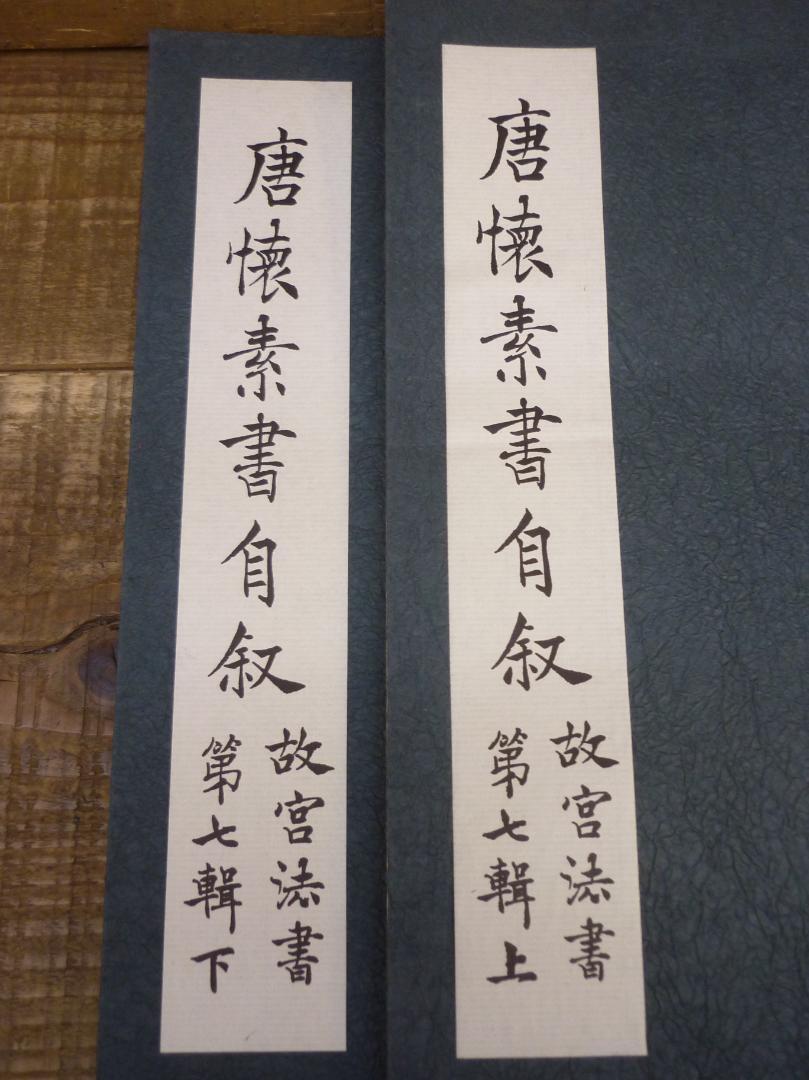 唐懷素書自叙
故宮法書
第七輯上
唐懷素書自叙
故宮法書
第七輯下